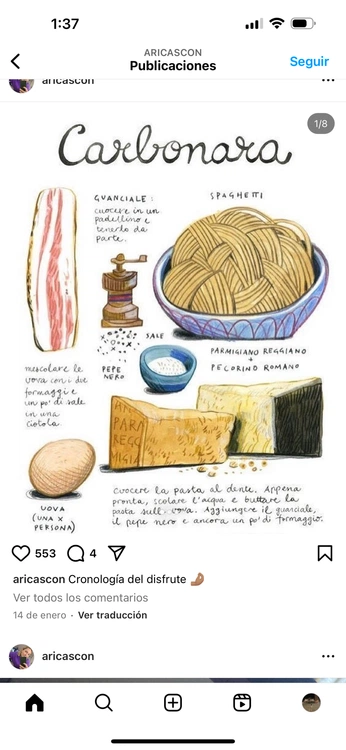 1:37
ARICASCON
Publicaciones
Seguir
aricascon
1/8
Carbonara
GUANCIALE:
cuocere in un
padellino e
tenerlo da
parte.
SPAGHETTI
SALE
PEPE
NERO
PARMIGIANO REGGIANO
+
PECORINO ROMANO
mescolare le
uova con i due
formaggi e
un po' di sale
in una
ciotola.
PARM
REGG
MIGIA
UOVA
(UNA X
PERSONA)
Cuocere la pasta al dente. Appena
pronta, scolare l'acqua e buttare la
pasta sull'uova. Aggiungere il guanciale,
il pepe nero e ancora un po' di formaggio.
553
4
aricascon Cronología del disfrute 🤌🏽
Ver todos los comentarios
14 de enero · Ver traducción
aricascon